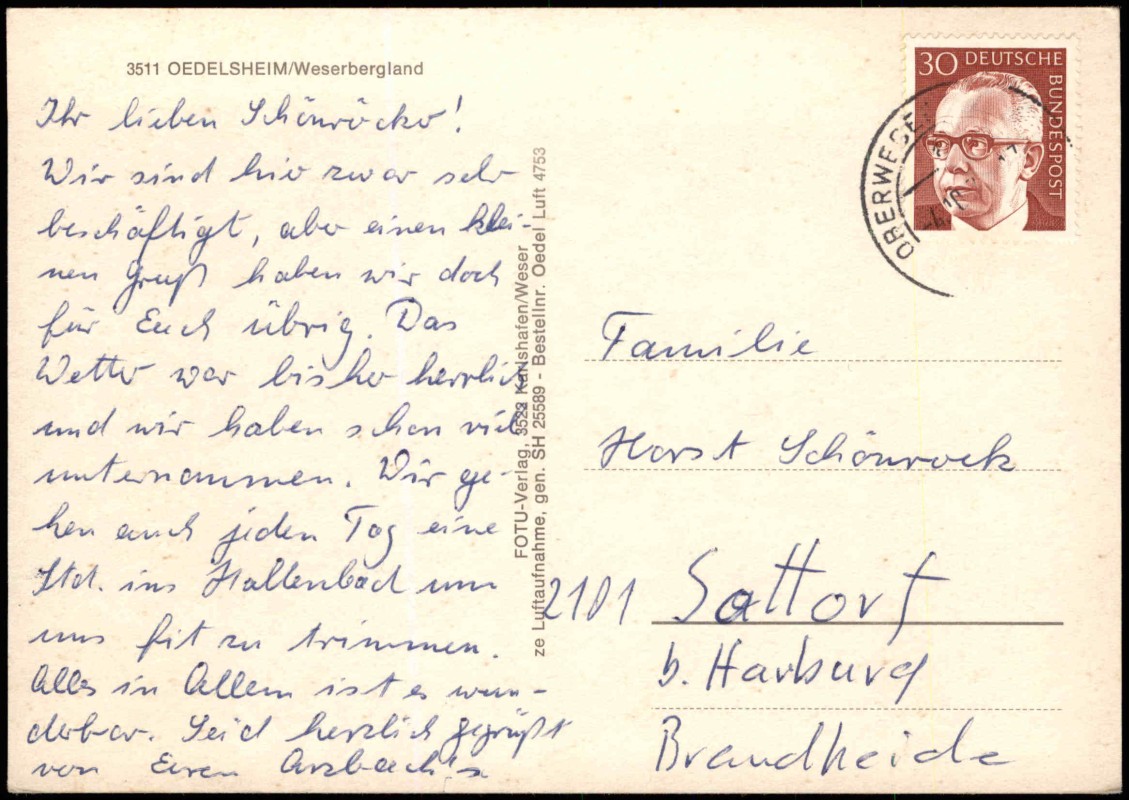 3511 OEDELSHEIM/Weserbergland
Ihr lieben Schönröcke!
Wir sind hier zwar sehr
beschäftigt, aber einen klei-
nen Gruß haben wir doch
für Euch übrig. Das
Wetter war bisher herrlich
und wir haben schon viel
unternommen. Wir ge-
hen auch jeden Tag eine
Std. ins Hallenbad um
uns fit zu trimmen.
Alles in Allem ist es wun-
derbar. Seid herzlich gegrüßt
von Euren Arzbach's
FOTU-Verlag, 3522 Karlshafen/Weser
ze Luftaufnahme, gen. SH 25589 - Bestellnr. Oedel Luft 4753
30 DEUTSCHE
BUNDESPOST
OBERWESE
Familie
Horst Schönrock
2101 Sottorf
b. Harburg
Brandheide